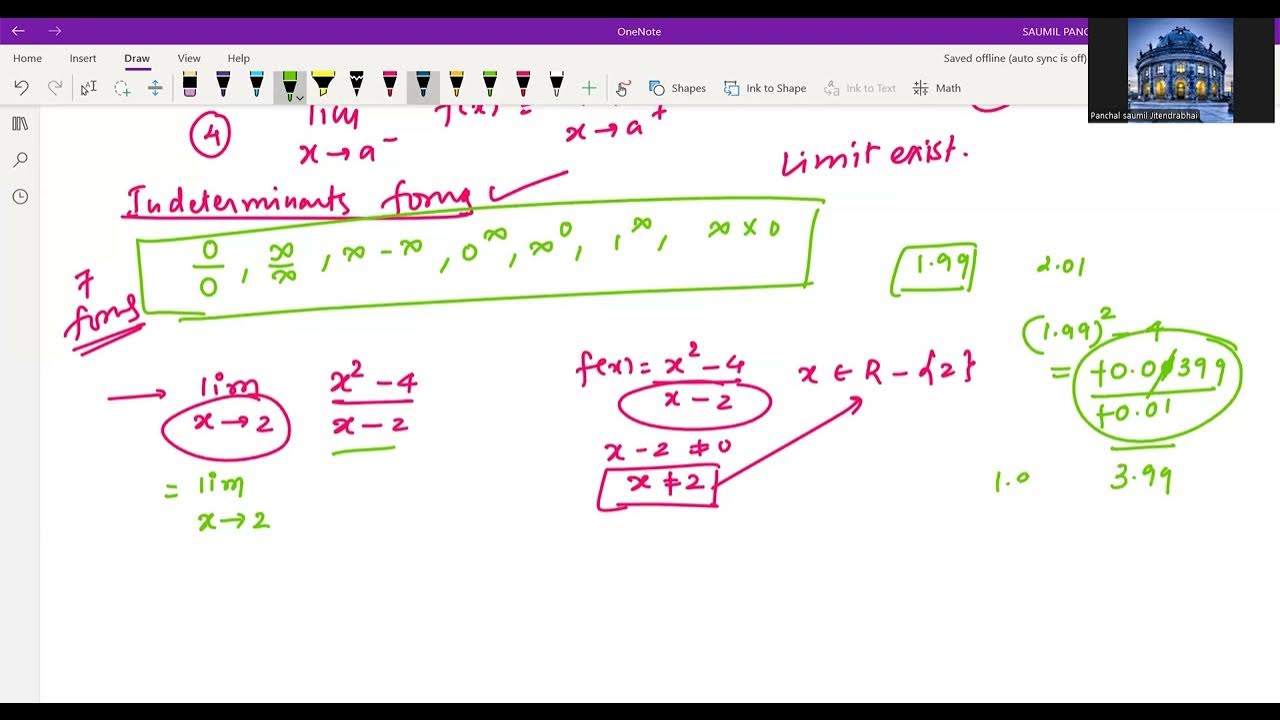 OneNote
SAUMIL PANC
Home Insert Draw View Help
Saved offline (auto sync is off)
Shapes Ink to Shape Ink to Text Math
Panchal saumil Jitendrabhai
4 lim x→a⁻ f(x) = x→a⁺
Limit exist.
Indeterminants forms
0/0, ∞/∞, ∞ - ∞, 0^∞, ∞^0, 1^∞, ∞ × 0
7 forms
1.99 2.01
(1.99)² - 4
= +0.0399 / +0.01
3.99
1.0
→ lim x→2 x² - 4 / x - 2
f(x) = x² - 4 / x - 2 x ∈ R - {2}
x - 2 ≠ 0
x ≠ 2
= lim x→2